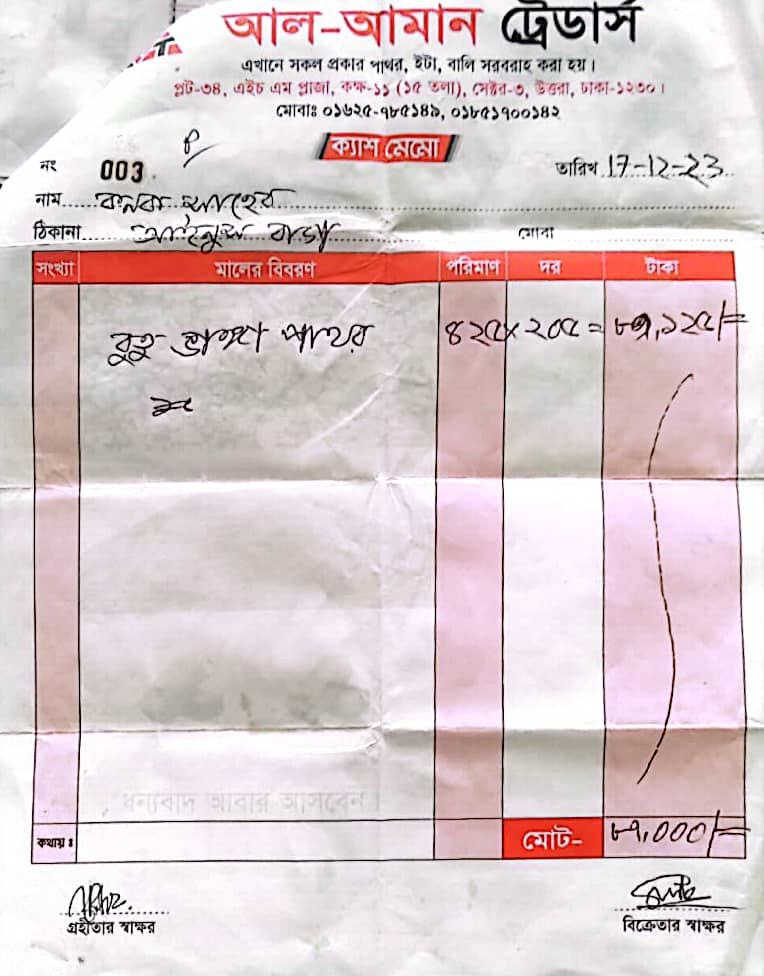 আল-আমান ট্রেডার্স
এখানে সকল প্রকার পাথর, ইটা, বালি সরবরাহ করা হয়।
প্লট-৩৪, এইচ এম প্লাজা, কক্ষ-১১ (১৫ তলা), সেক্টর-৩, উত্তরা, ঢাকা-১২৩০।
মোবাঃ ০১৬২৫-৭৮৫১৪৯, ০১৮৫১৭০০১৪২
ক্যাশ মেমো
নং 003 তারিখ 17-12-23
নাম সাহেব
ঠিকানা মোবা
সংখ্যা মালের বিবরণ পরিমাণ দর টাকা
ভাঙ্গা পাথর ৪২৫ x ২০৫ = ৮৭,১২৫/=
ধন্যবাদ আবার আসবেন।
কথায় ঃ মোট- ৮৭,000/=
গ্রহীতার স্বাক্ষর বিক্রেতার স্বাক্ষর